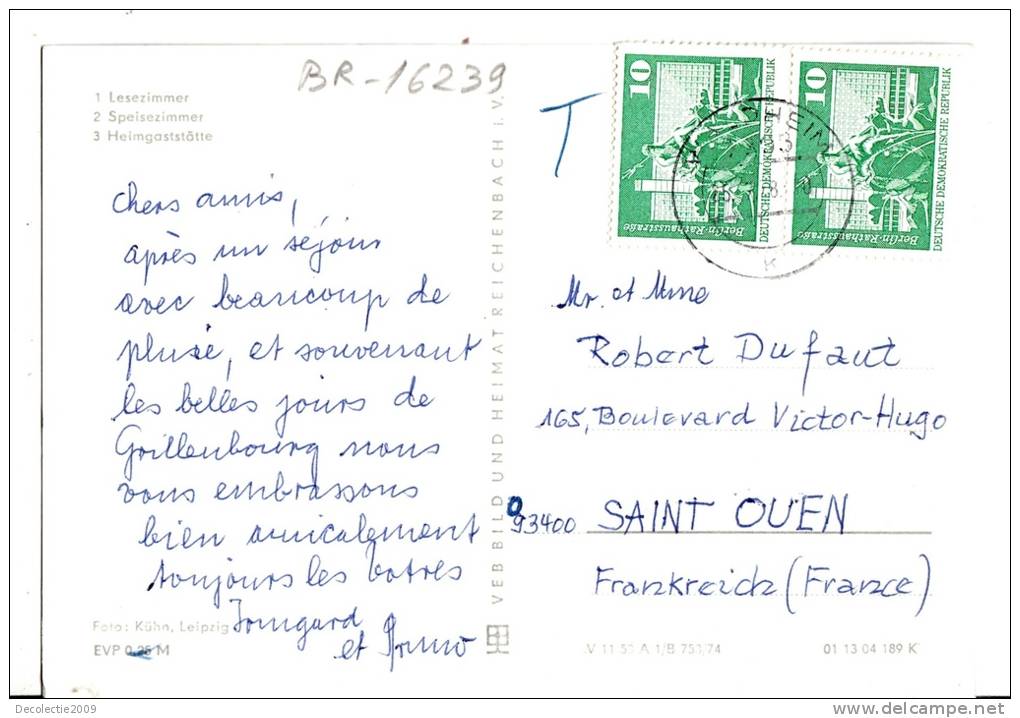 BR-16239
1 Lesezimmer
2 Speisezimmer
3 Heimgaststätte
chers amis,
après un séjour
avec beaucoup de
pluie, et souvenant
les belles jours de
Grillenbourg nous
vous embrassons
bien amicalement
toujours les votres
Irmgard
et
Foto: Kühn, Leipzig
EVP 0,25 M
VEB BILD UND HEIMAT REICHENBACH i. V.
T
10
Berlin-Rathausstraße
DEUTSCHE DEMOKRATISCHE REPUBLIK
10
Berlin-Rathausstraße
DEUTSCHE DEMOKRATISCHE REPUBLIK
Mr. et Mme
Robert Dufaut
165, Boulevard Victor-Hugo
93400 SAINT OUEN
Frankreich (France)
V 11 50 A 1/B 753/74
01 13 04 189 K
Decolectie2009
www.delcampe.net